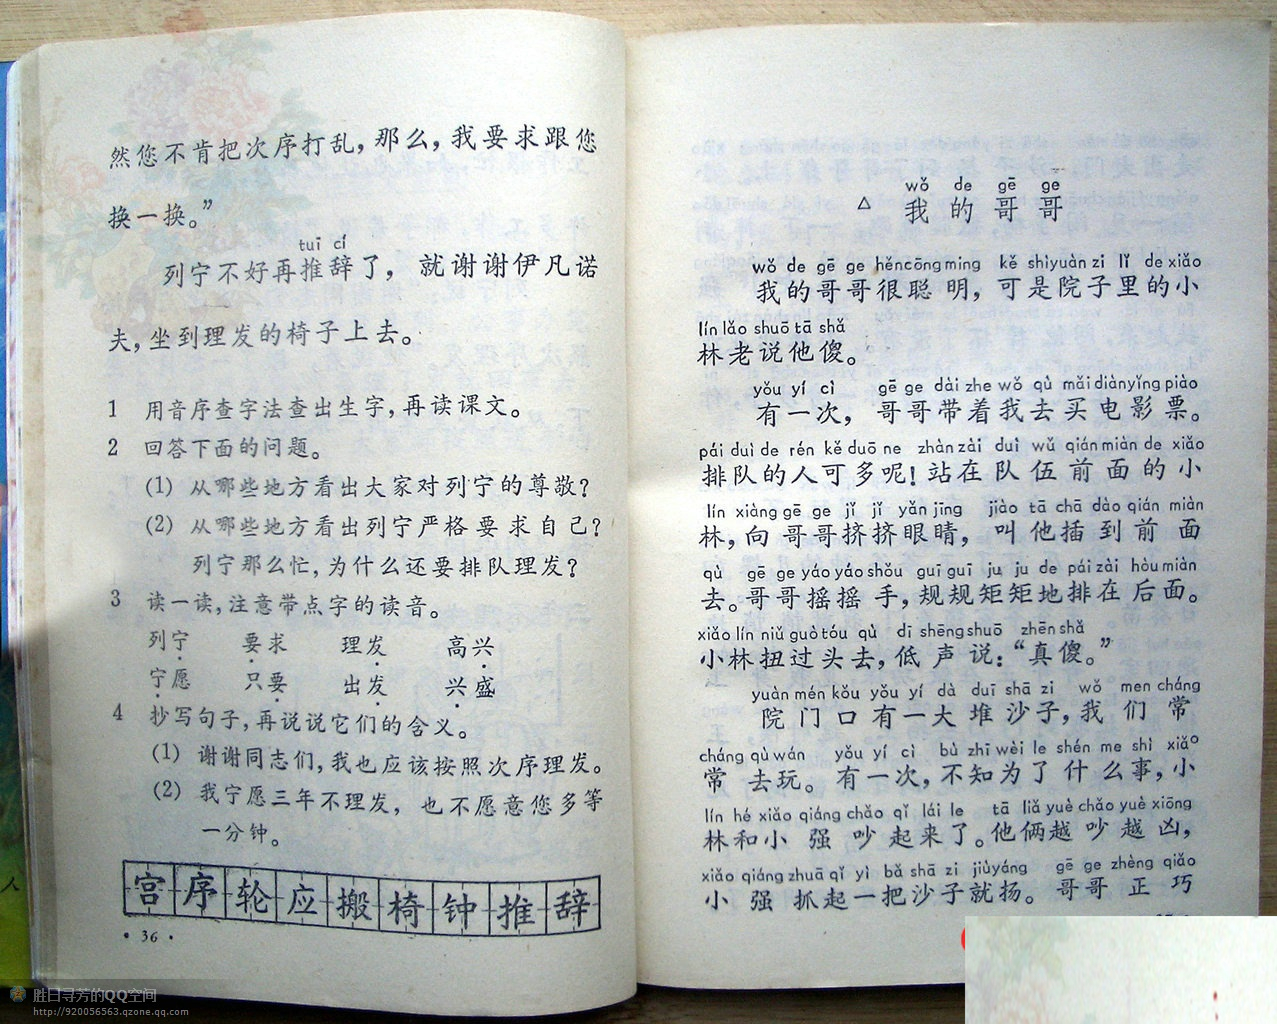 然您不肯把次序打乱，那么，我要求跟您
换一换。”
tuī cí
列宁不好再推辞了，就谢谢伊凡诺
夫，坐到理发的椅子上去。
1 用音序查字法查出生字，再读课文。
2 回答下面的问题。
(1) 从哪些地方看出大家对列宁的尊敬？
(2) 从哪些地方看出列宁严格要求自己？
列宁那么忙，为什么还要排队理发？
3 读一读，注意带点字的读音。
列宁 要求 理发 高兴
宁愿 只要 出发 兴盛
4 抄写句子，再说说它们的含义。
(1) 谢谢同志们，我也应该按照次序理发。
(2) 我宁愿三年不理发，也不愿意您多等
一分钟。
宫序轮应搬椅钟推辞
· 36 ·
wǒ de gē ge
△ 我的哥哥
wǒ de gē ge hěncōngming kě shìyuàn zi lǐ de xiǎo
我的哥哥很聪明，可是院子里的小
lín lǎo shuō tā shǎ
林老说他傻。
yǒu yí cì gē ge dài zhe wǒ qù mǎi diànyǐng piào
有一次，哥哥带着我去买电影票。
pái duì de rén kě duō ne zhàn zài duì wǔ qián miàn de xiǎo
排队的人可多呢！站在队伍前面的小
lín xiàng gē ge jǐ jǐ yǎn jīng jiào tā chā dào qián miàn
林，向哥哥挤挤眼睛，叫他插到前面
qù gē ge yáo yáo shǒu guī guī jǔ jǔ de pái zài hòu miàn
去。哥哥摇摇手，规规矩矩地排在后面。
xiǎo lín niǔ guò tóu qù dī shēng shuō zhēn shǎ
小林扭过头去，低声说：“真傻。”
yuàn mén kǒu yǒu yí dà duī shā zi wǒ men cháng
院门口有一大堆沙子，我们常
cháng qù wán yǒu yí cì bù zhī wèi le shén me shì xiǎo
常去玩。有一次，不知为了什么事，小
lín hé xiǎo qiáng chǎo qǐ lái le tā liǎ yuè chǎo yuè xiōng
林和小强吵起来了。他俩越吵越凶，
xiǎo qiáng zhuā qǐ yì bǎ shā zi jiù yáng gē ge zhèng qiǎo
小强抓起一把沙子就扬。哥哥正巧
人
胜日寻芳的QQ空间
http://920056563.qzone.qq.com